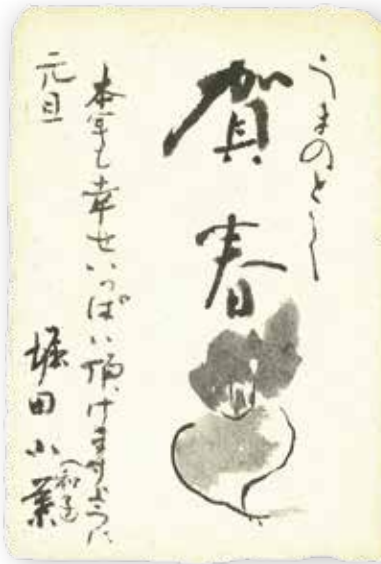 うまのとし
賀春
本年も幸せいっぱい頂けますように
元旦
堀田小葉
(和子)